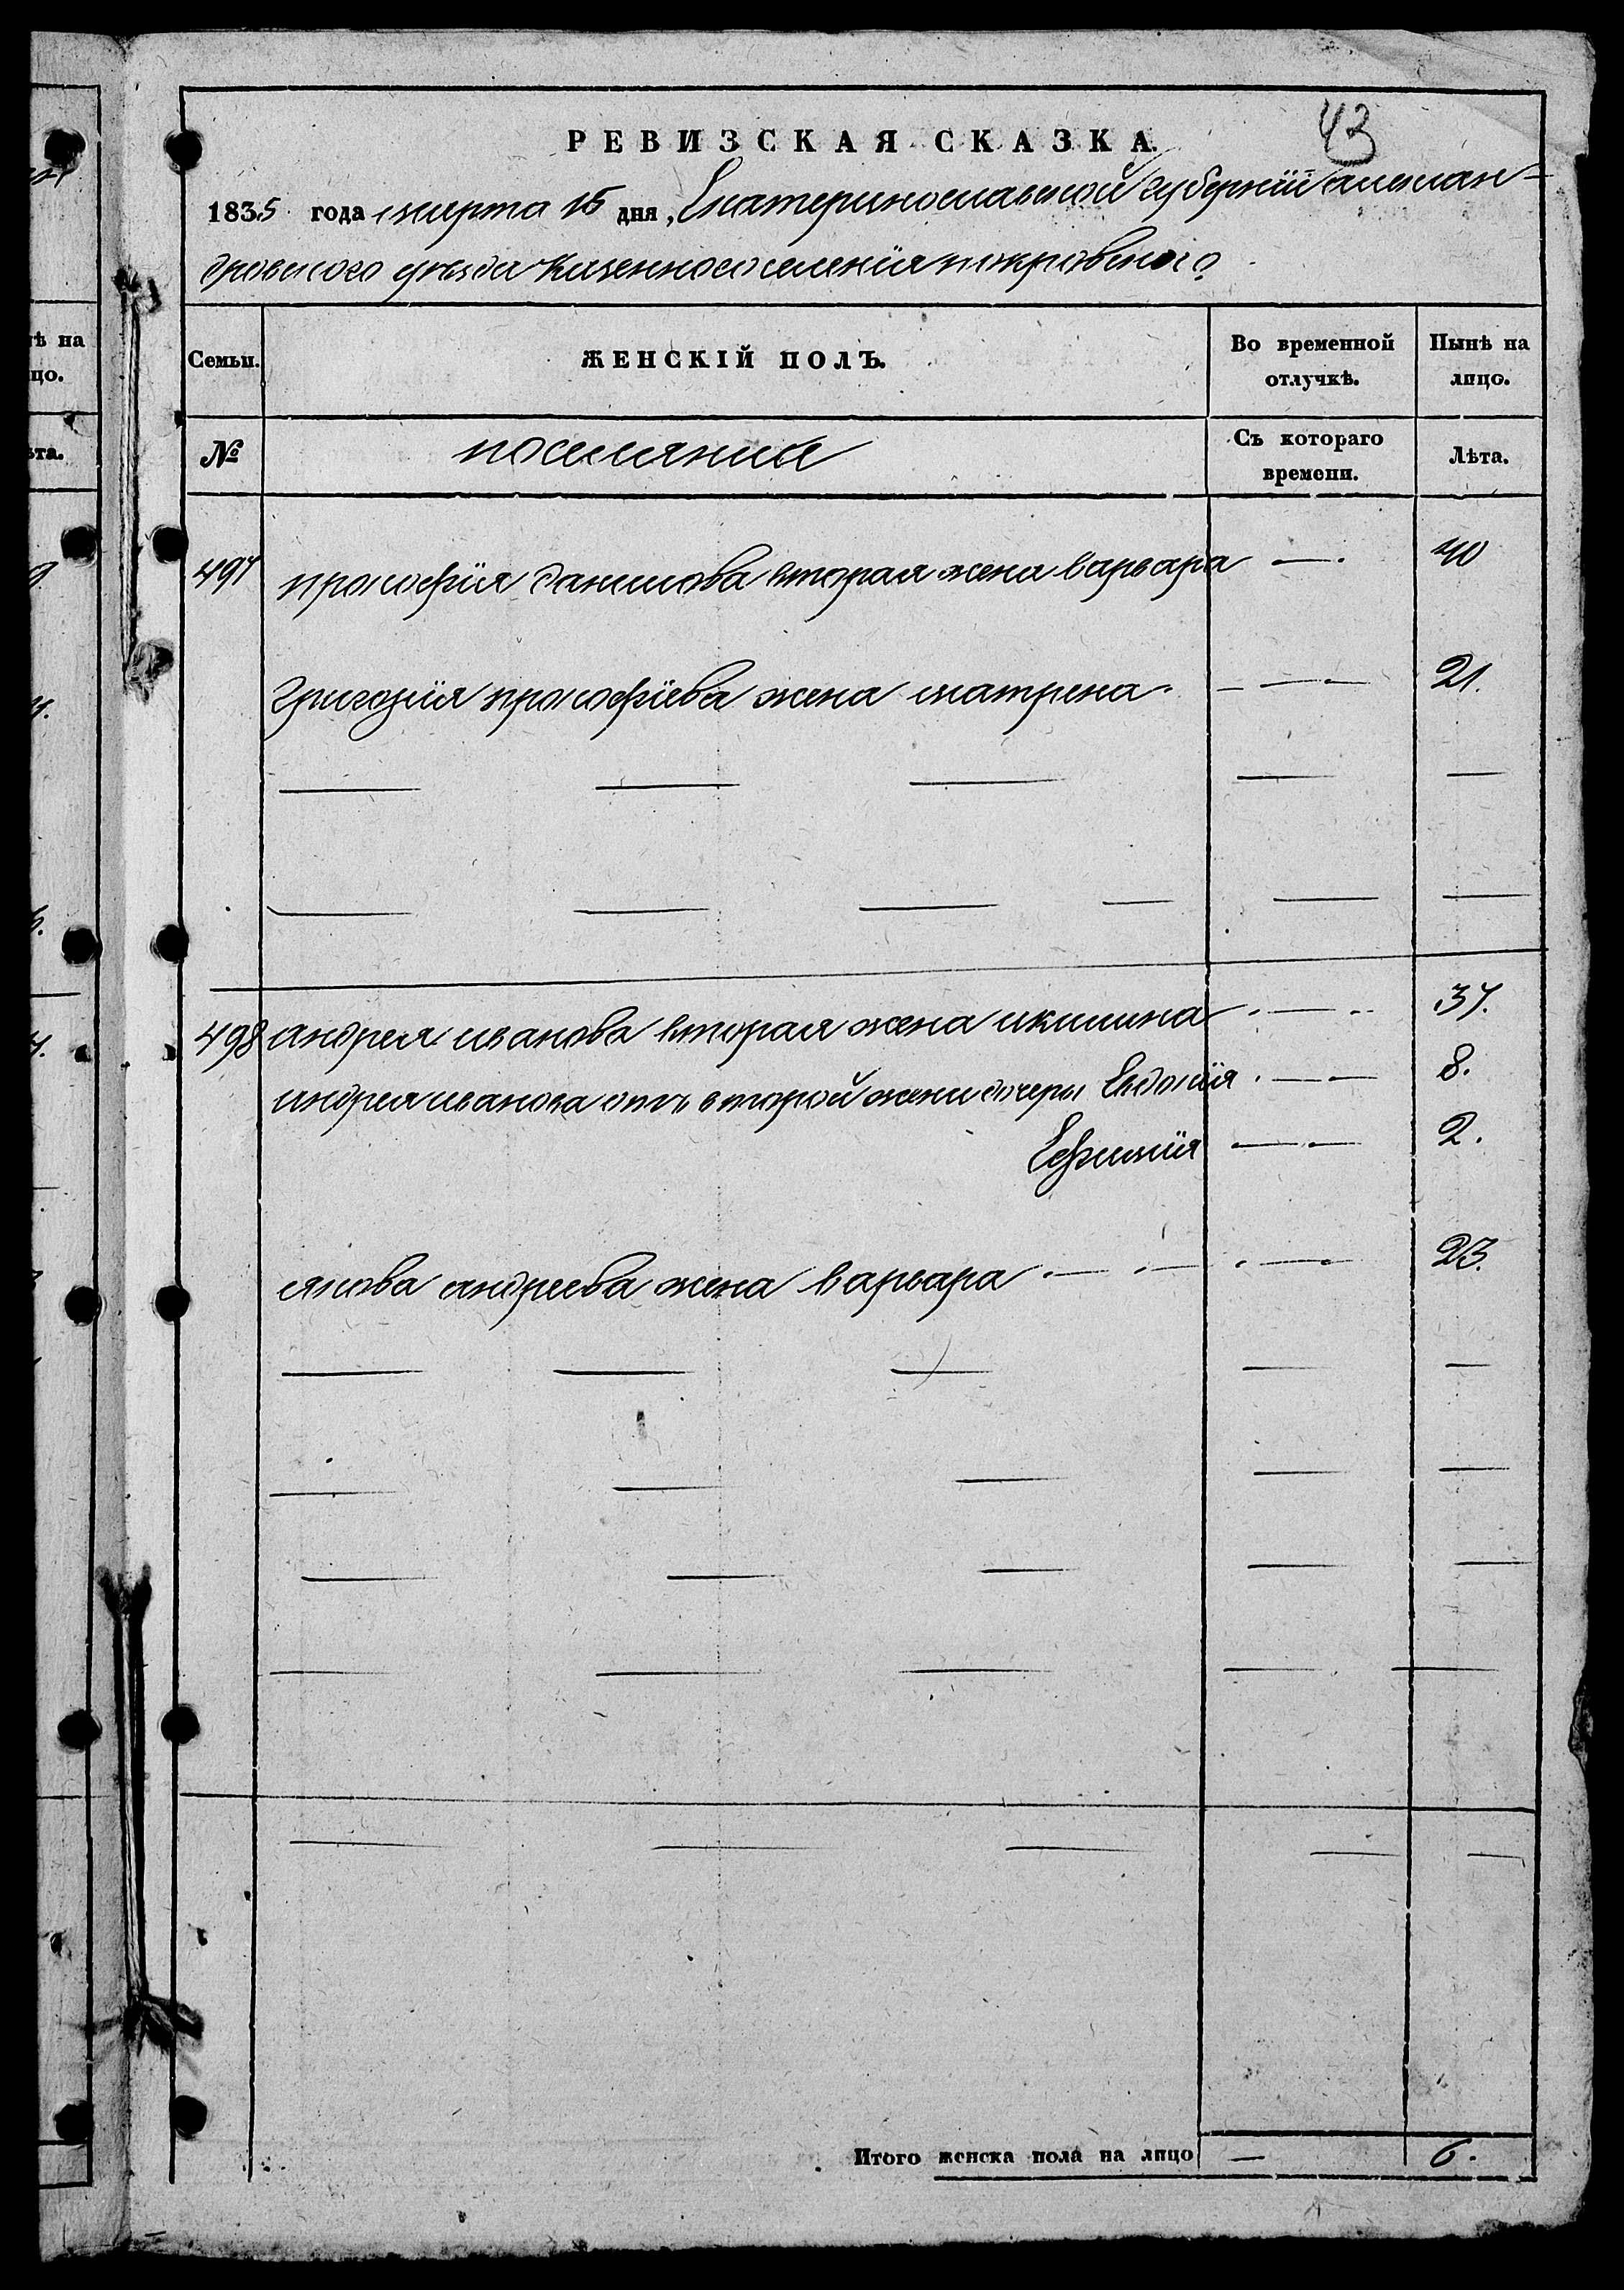 43
РЕВИЗСКАЯ СКАЗКА.
1835 года марта 15 дня, Екатеринославской губернїи александ-
ровского уѣзда казенного селенїя покровского
Семьи. ЖЕНСКІЙ ПОЛЪ. Во временной отлучкѣ. Нынѣ на лицо.
№ поселяние Съ котораго времени. Лѣта.
497 прокофїя данилова вторая жена варвара — 40
григорїя прокофїева жена матрена — 21.
498 андрея иванова вторая жена акилина — 37.
андрея иванова отъ второй жени дочери Евдокїя — 8.
Ефимїя — 2.
якова андреева жена варвара — 23.
Итого женска пола на лицо — 6.
ѣ на
цо.
ѣта.